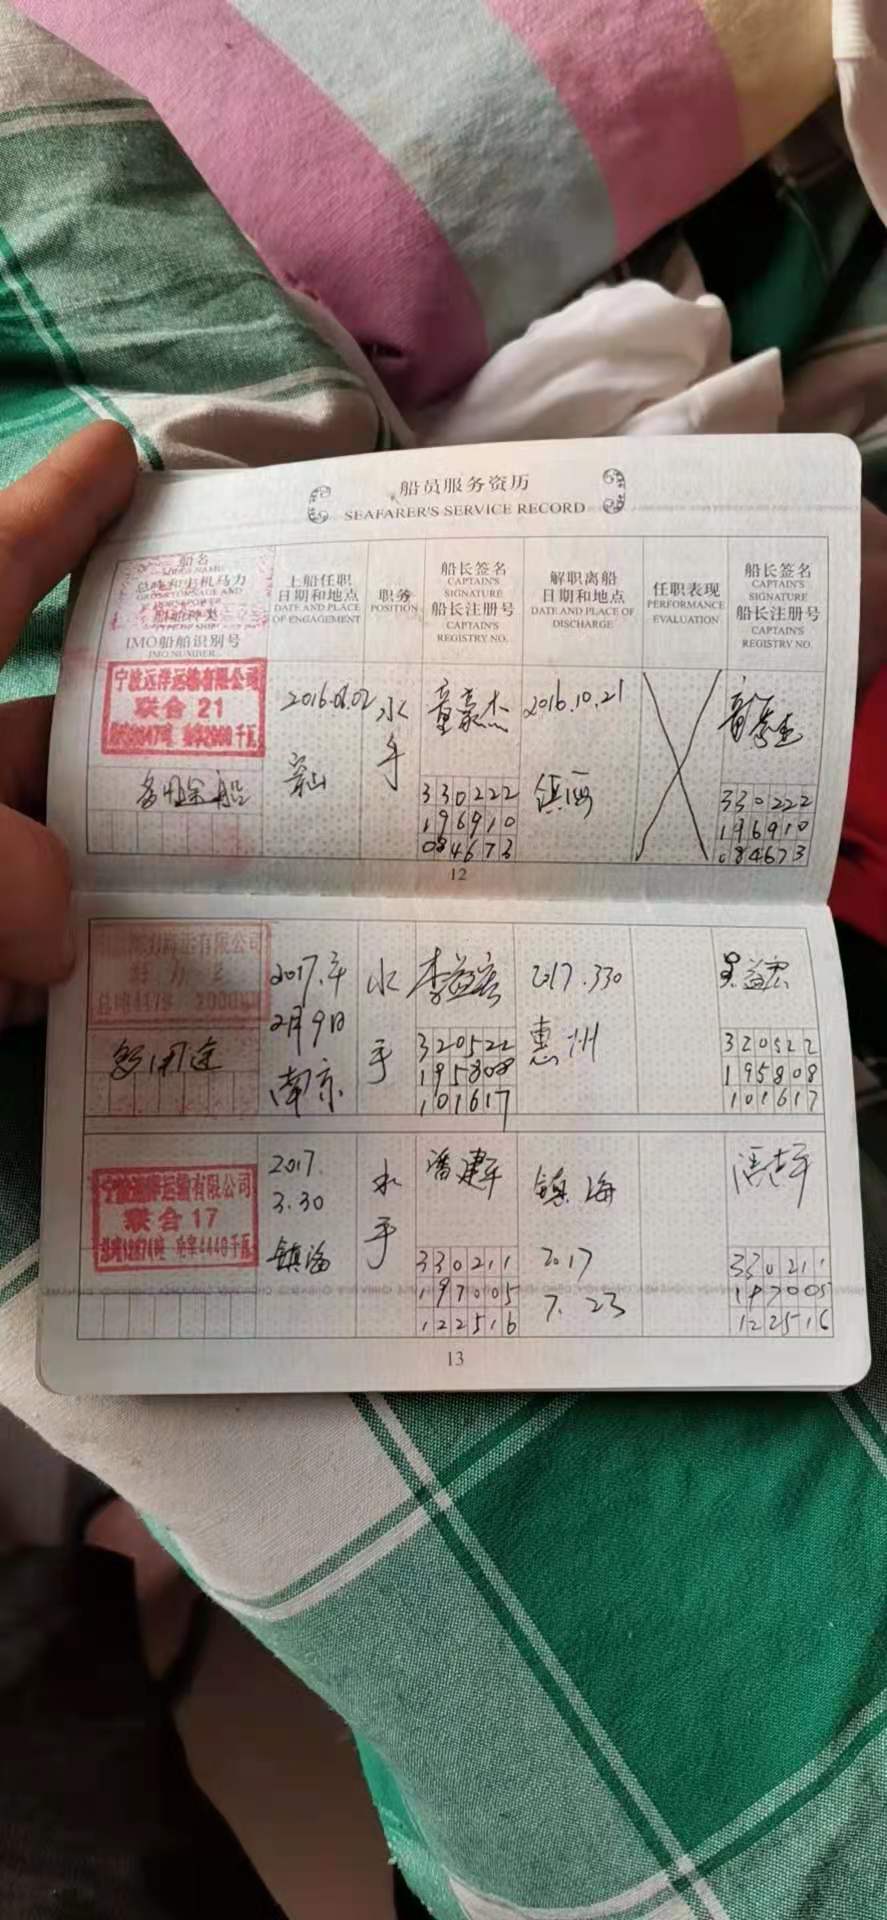 船员服务资历
SEAFARER'S SERVICE RECORD
船名
总吨和主机马力
船舶种类
IMO船舶识别号
IMO NUMBER
上船任职
日期和地点
DATE AND PLACE
OF ENGAGEMENT
职务
POSITION
船长签名
CAPTAIN'S
SIGNATURE
船长注册号
CAPTAIN'S
REGISTRY NO.
解职离船
日期和地点
DATE AND PLACE OF
DISCHARGE
任职表现
PERFORMANCE
EVALUATION
船长签名
CAPTAIN'S
SIGNATURE
船长注册号
CAPTAIN'S
REGISTRY NO.
宁波远洋运输有限公司
联合 21
多用途船
水
手
童豪杰
330222
196910
084673
2016.10.21
镇海
330222
196910
084673
12
海运有限公司
多用途
2017.年
2月9日
南京
水
手
李益宏
320522
195808
101617
2017.330
惠州
320522
195808
101617
宁波远洋运输有限公司
联合 17
2017
3.30
镇海
水
手
潘建平
330211
197005
122516
镇海
2017
7.23
330211
197005
122516
13